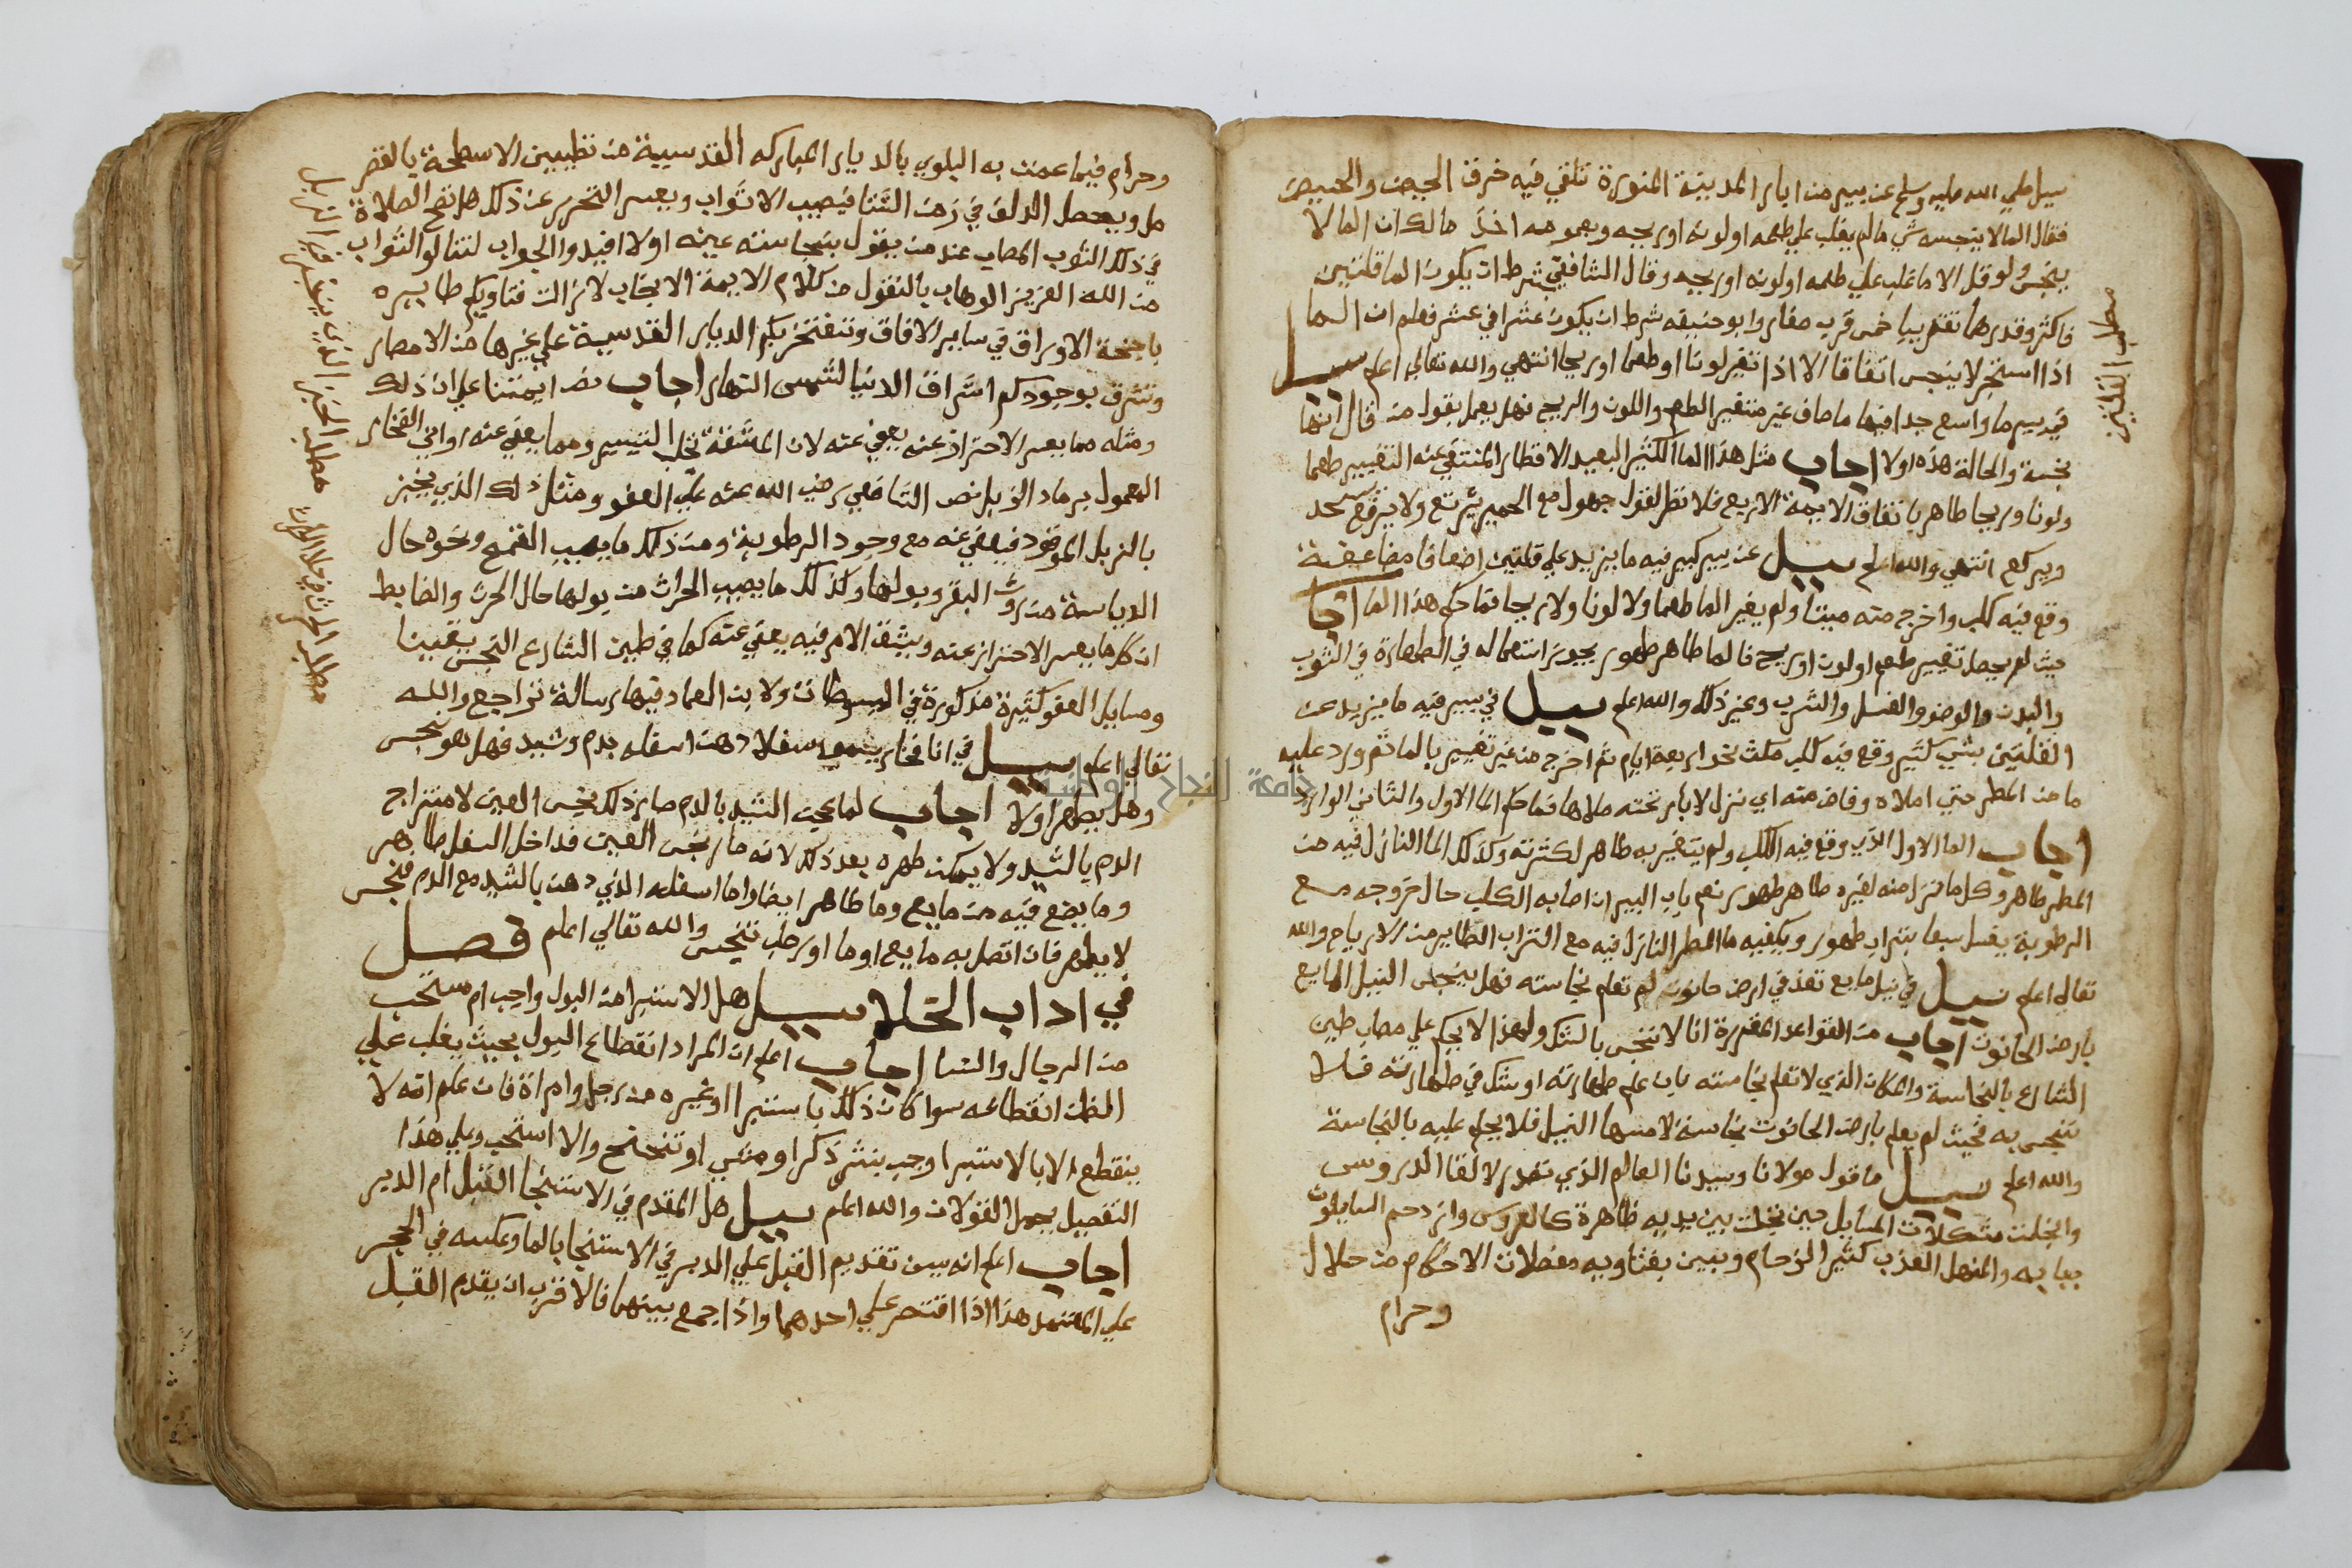 سيل صلي الله عليه وسلم عن بير من ابار المدينة المنورة تلقي فيه خرق الحيض والحييض
فقال الما لا ينجسه شي ما لم يغلب علي طعمه او لونه او ريحه وبعمومه اخذ مالك ان الما لا
ينجس ولو قل الا ما غلب علي طعمه او لونه او ريحه وقال الشافعي شرط ان يكون الما قلتين
فاكثر وقدرهما تقتريبا خمس قرب صغار وابو حنيفه شرط ان يكون عشرا في عشر فعلم ان الما
اذا استبحر لا ينجس اتفاقا الا اذا تغير لونا او طعما او ريحا انتهي والله تعالي اعلم سيل
في بير ما واسع جدا فيها ما صاف غير متغير الطعم واللون والريح فهل يعمل بقول من قال انها
نجسة والحالة هذه اولا اجاب مثل هذا الما الكثير البعيد الاقطار المنتفي عنه التغيير طعما
ولونا وريحا طاهر باتفاق الايمة الاربع فلا نظر لقول جهول مع الحمير يرتع ولا يرفع يسجد
ويركع انتهي والله اعلم سيل عن بير كبير فيه ما يزيد علي قلتين اضعافا مضاعفة
وقع فيه كلب واخرج منه ميتا ولم يغير الما طعما ولا لونا ولا ريحا فما حكم هذا الما اجاب
حيث لم يحصل تغيير طعم او لون او ريح فالما طاهر طهور يجوز استعماله في الطهارة في الثوب
والبدن والوضو والغسل والشرب وغير ذلك والله اعلم سيل في بير فيه ما يزيد عن
القلتين بشي كثير وقع فيه كلب مكث نحو اربعة ايام ثم اخرج من غير تغيير بالما ثم ورد عليه
ما من المطر حتي املاه وفاض منه اي نزل لابار تحته ملاها فما حكم الما الاول والثاني الوارد
اجاب الما الاول الذي وقع فيه الكلب ولم يتغير به طاهر لكثرته وكذلك الما النازل فيه من
المطر طاهر وكل ما نزل منه لغيره طاهر طهور نعم باب البير ان اصابه الكلب حال خروجه مع
الرطوبة يغسل سبعا بتراب طهور ويكفيه ما المطر النازل فيه مع التراب الطاير من الارياح والله
تعالي اعلم سيل في نيل مايع تفذ في ارض حانوت لم تعلم نجاسته فهل ينجس النيل المايع
بارض الحانوت اجاب من القواعد المقررة انا لا ننجس بالشك ولهذا لا يحكم علي مصاب طين
الشارع بالنجاسة والمكان الذي لا تعلم نجاسته بان علم طهارته او شك في طهارته فلا
ننجس به فحيث لم يعلم بارض الحانوت نجاسة لامسها النيل فلا يحكم عليه بالنجاسة
والله اعلم سيل ما قول مولانا وسيدنا العالم الذي تصدر لالقا الدروس
وانجلت مشكلات المسايل حين تجلت بين يديه ظاهرة كالعروس وازدحم السايلون
ببابه والمنهل العذب كثير الزحام وبين بفتاويه معضلات الاحكام من حلال
وحرام
مطلب القلتين
وحرام فيما عمت به البلوي بالديار المباركه القدسية من تطيين الاسطحة بالقصر
مل ويحصل الدلف في زمن الشتا فيصيب الاثواب ويعسر التحرر عن ذلك هل تصح الصلاة
في ذلك الثوب المصاب عند من يقول بنجاسته عينه اولا افيدوا الجواب لتنالوا الثواب
من الله العزيز الوهاب بالنقول من كلام الايمة الانجاب لا زالت فتاويكم طايره
باجنحة الاوراق في ساير الافاق وتفتخر بكم الديار القدسية علي غيرها من الامصار
وتشرق بوجودكم اشراق الدنيا لشمس النهار اجاب نص ايمتنا علي ان ذلك
ومثله مما يعسر الاحتراز عنه يعفي عنه لان المشقة تجلب التيسير ومما يعفي عنه اواني الفخار
المعمول برماد الزبل نص الشافعي رضي الله عنه علي العفو ومثل ذلك الذي يخبز
بالزبل الموقود فيعفي عنه مع وجود الرطوبة ومن ذلك ما يصيب القمح ونحوه حال
الدياسة من روث البقر وبولها وكذلك ما يصيب الحراث من بولها حال الحرث والضابط
ان كل ما يعسر الاحتراز عنه ويشق الامر فيه يعفي عنه كما في طين الشارع النجس يقينا
ومسايل العفو كثيرة مذكورة في المبسوطات ولابن العماد فيها رسالة تراجع والله
تعالي اعلم سيل في انا فخار سفلا دهن اسفله بدم وشيد فهل هو نجس
وهل يطهر اولا اجاب لما عجن الشيد بالدم صار ذلك نجس العين لامتزاج
الدم بالشيد ولا يمكن طهره بعد ذلك لانه صار نجس العين فداخل السفل طاهر
وما يضع فيه من مايع وما طاهر ايضا واما اسفله الذي دهن بالشيد مع الدم فنجس
لا يطهر فان اتصل به مايع او ما او رطب تنجس والله تعالي اعلم فصل
في اداب الخلا سيل هل الاستبرا من البول واجب ام مستحب
من الرجال والنسا اجاب اعلم ان المراد انقطاع البول بحيث يغلب علي
الظن انقطاعه سوا كان ذلك باستبرا او غيره من رجل وامراة فان علم انه لا
ينقطع الا بالاستبرا وجب بنثر ذكر او مشي او تنحنح والا استحب وعلي هذا
التفصيل يحمل القولان والله اعلم سيل هل المقدم في الاستنجا القبل ام الدبر
اجاب اعلم انه يسن تقديم القبل علي الدبر في الاستنجا بالما وعكسه في الحجر
علي المعتمد هذا اذا اقتصر علي احدهما واذا جمع بينهما فالاقرب ان يقدم القبل
مطلب الخبز الذي يخبز في الزبل